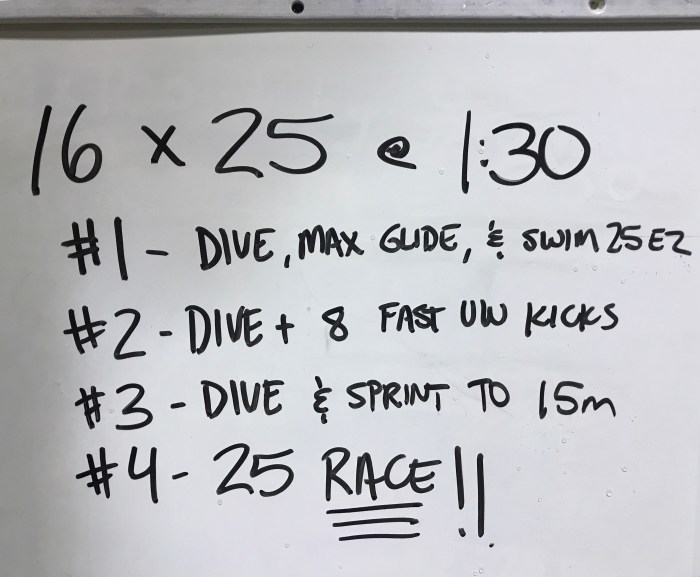 16 x 25 @ 1:30
#1 - DIVE, MAX GLIDE, & SWIM 25 EZ
#2 - DIVE + 8 FAST UW KICKS
#3 - DIVE & SPRINT TO 15m
#4 - 25 RACE!!